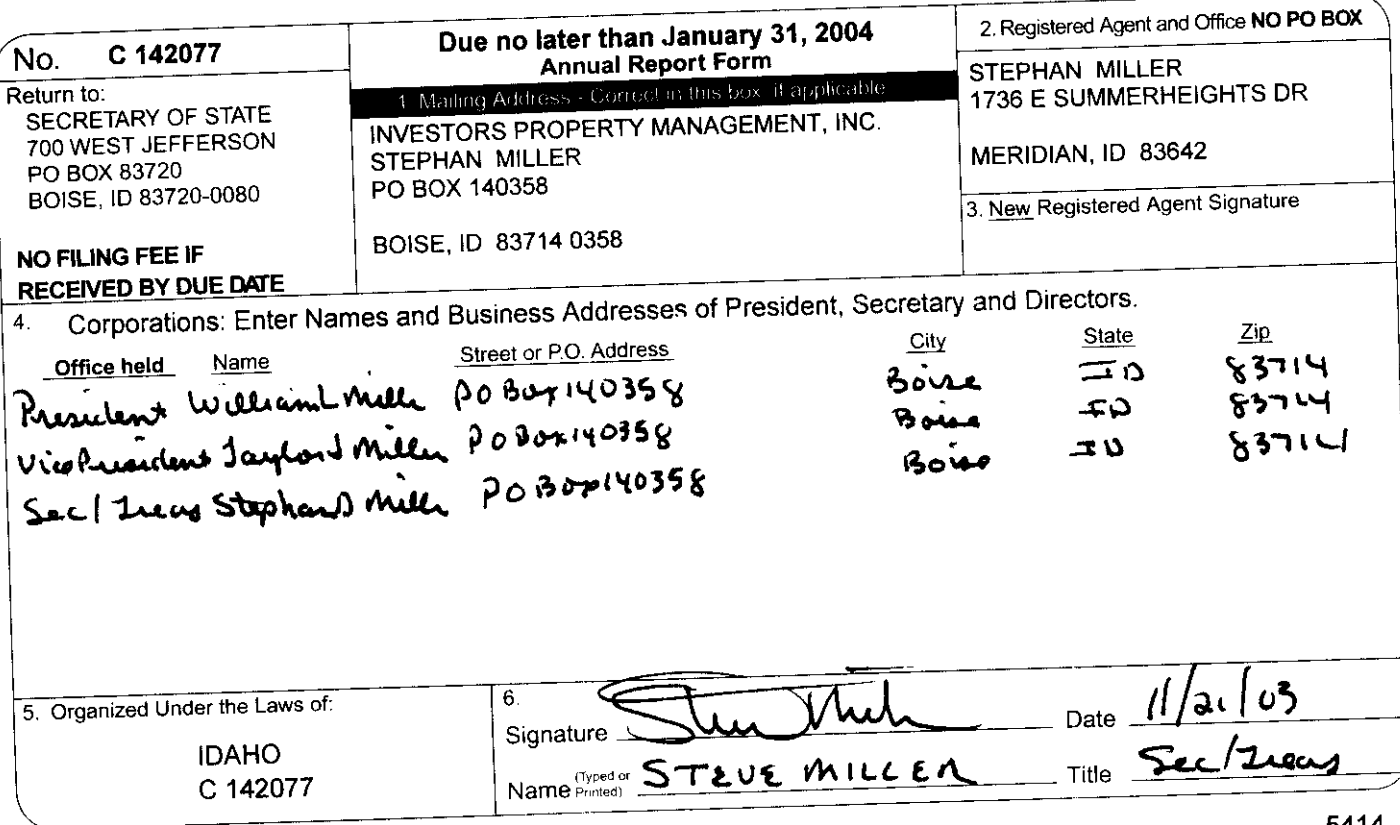 No. C 142077
Return to:
SECRETARY OF STATE
700 WEST JEFFERSON
PO BOX 83720
BOISE, ID 83720-0080
NO FILING FEE IF
RECEIVED BY DUE DATE
Due no later than January 31, 2004
Annual Report Form
1. Mailing Address - Correct in this box, if applicable
INVESTORS PROPERTY MANAGEMENT, INC.
STEPHAN MILLER
PO BOX 140358
BOISE, ID 83714 0358
2. Registered Agent and Office NO PO BOX
STEPHAN MILLER
1736 E SUMMERHEIGHTS DR
MERIDIAN, ID 83642
3. New Registered Agent Signature
4. Corporations: Enter Names and Business Addresses of President, Secretary and Directors.
Office held Name Street or P.O. Address City State Zip
President William L Miller PO Box 140358 Boise ID 83714
Vice President Taylor J Miller PO Box 140358 Boise ID 83714
Sec/Treas Stephan D Miller PO Box 140358 Boise ID 83714
5. Organized Under the Laws of:
IDAHO
C 142077
6.
Signature Steve Miller Date 11/21/03
Name (Typed or Printed) STEVE MILLER Title Sec/Treas
5414